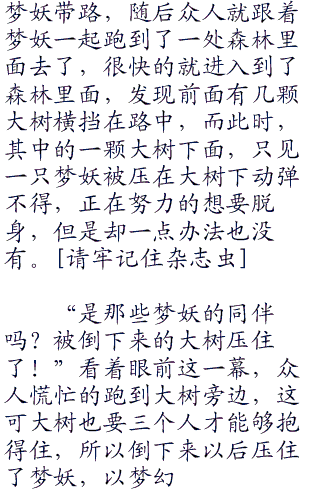 梦妖带路，随后众人就跟着
梦妖一起跑到了一处森林里
面去了，很快的就进入到了
森林里面，发现前面有几颗
大树横挡在路中，而此时，
其中的一颗大树下面，只见
一只梦妖被压在大树下动弹
不得，正在努力的想要脱
身，但是却一点办法也没
有。[请牢记住杂志虫]
“是那些梦妖的同伴
吗？被倒下来的大树压住
了！”看着眼前这一幕，众
人慌忙的跑到大树旁边，这
可大树也要三个人才能够抱
得住，所以倒下来以后压住
了梦妖，以梦幻